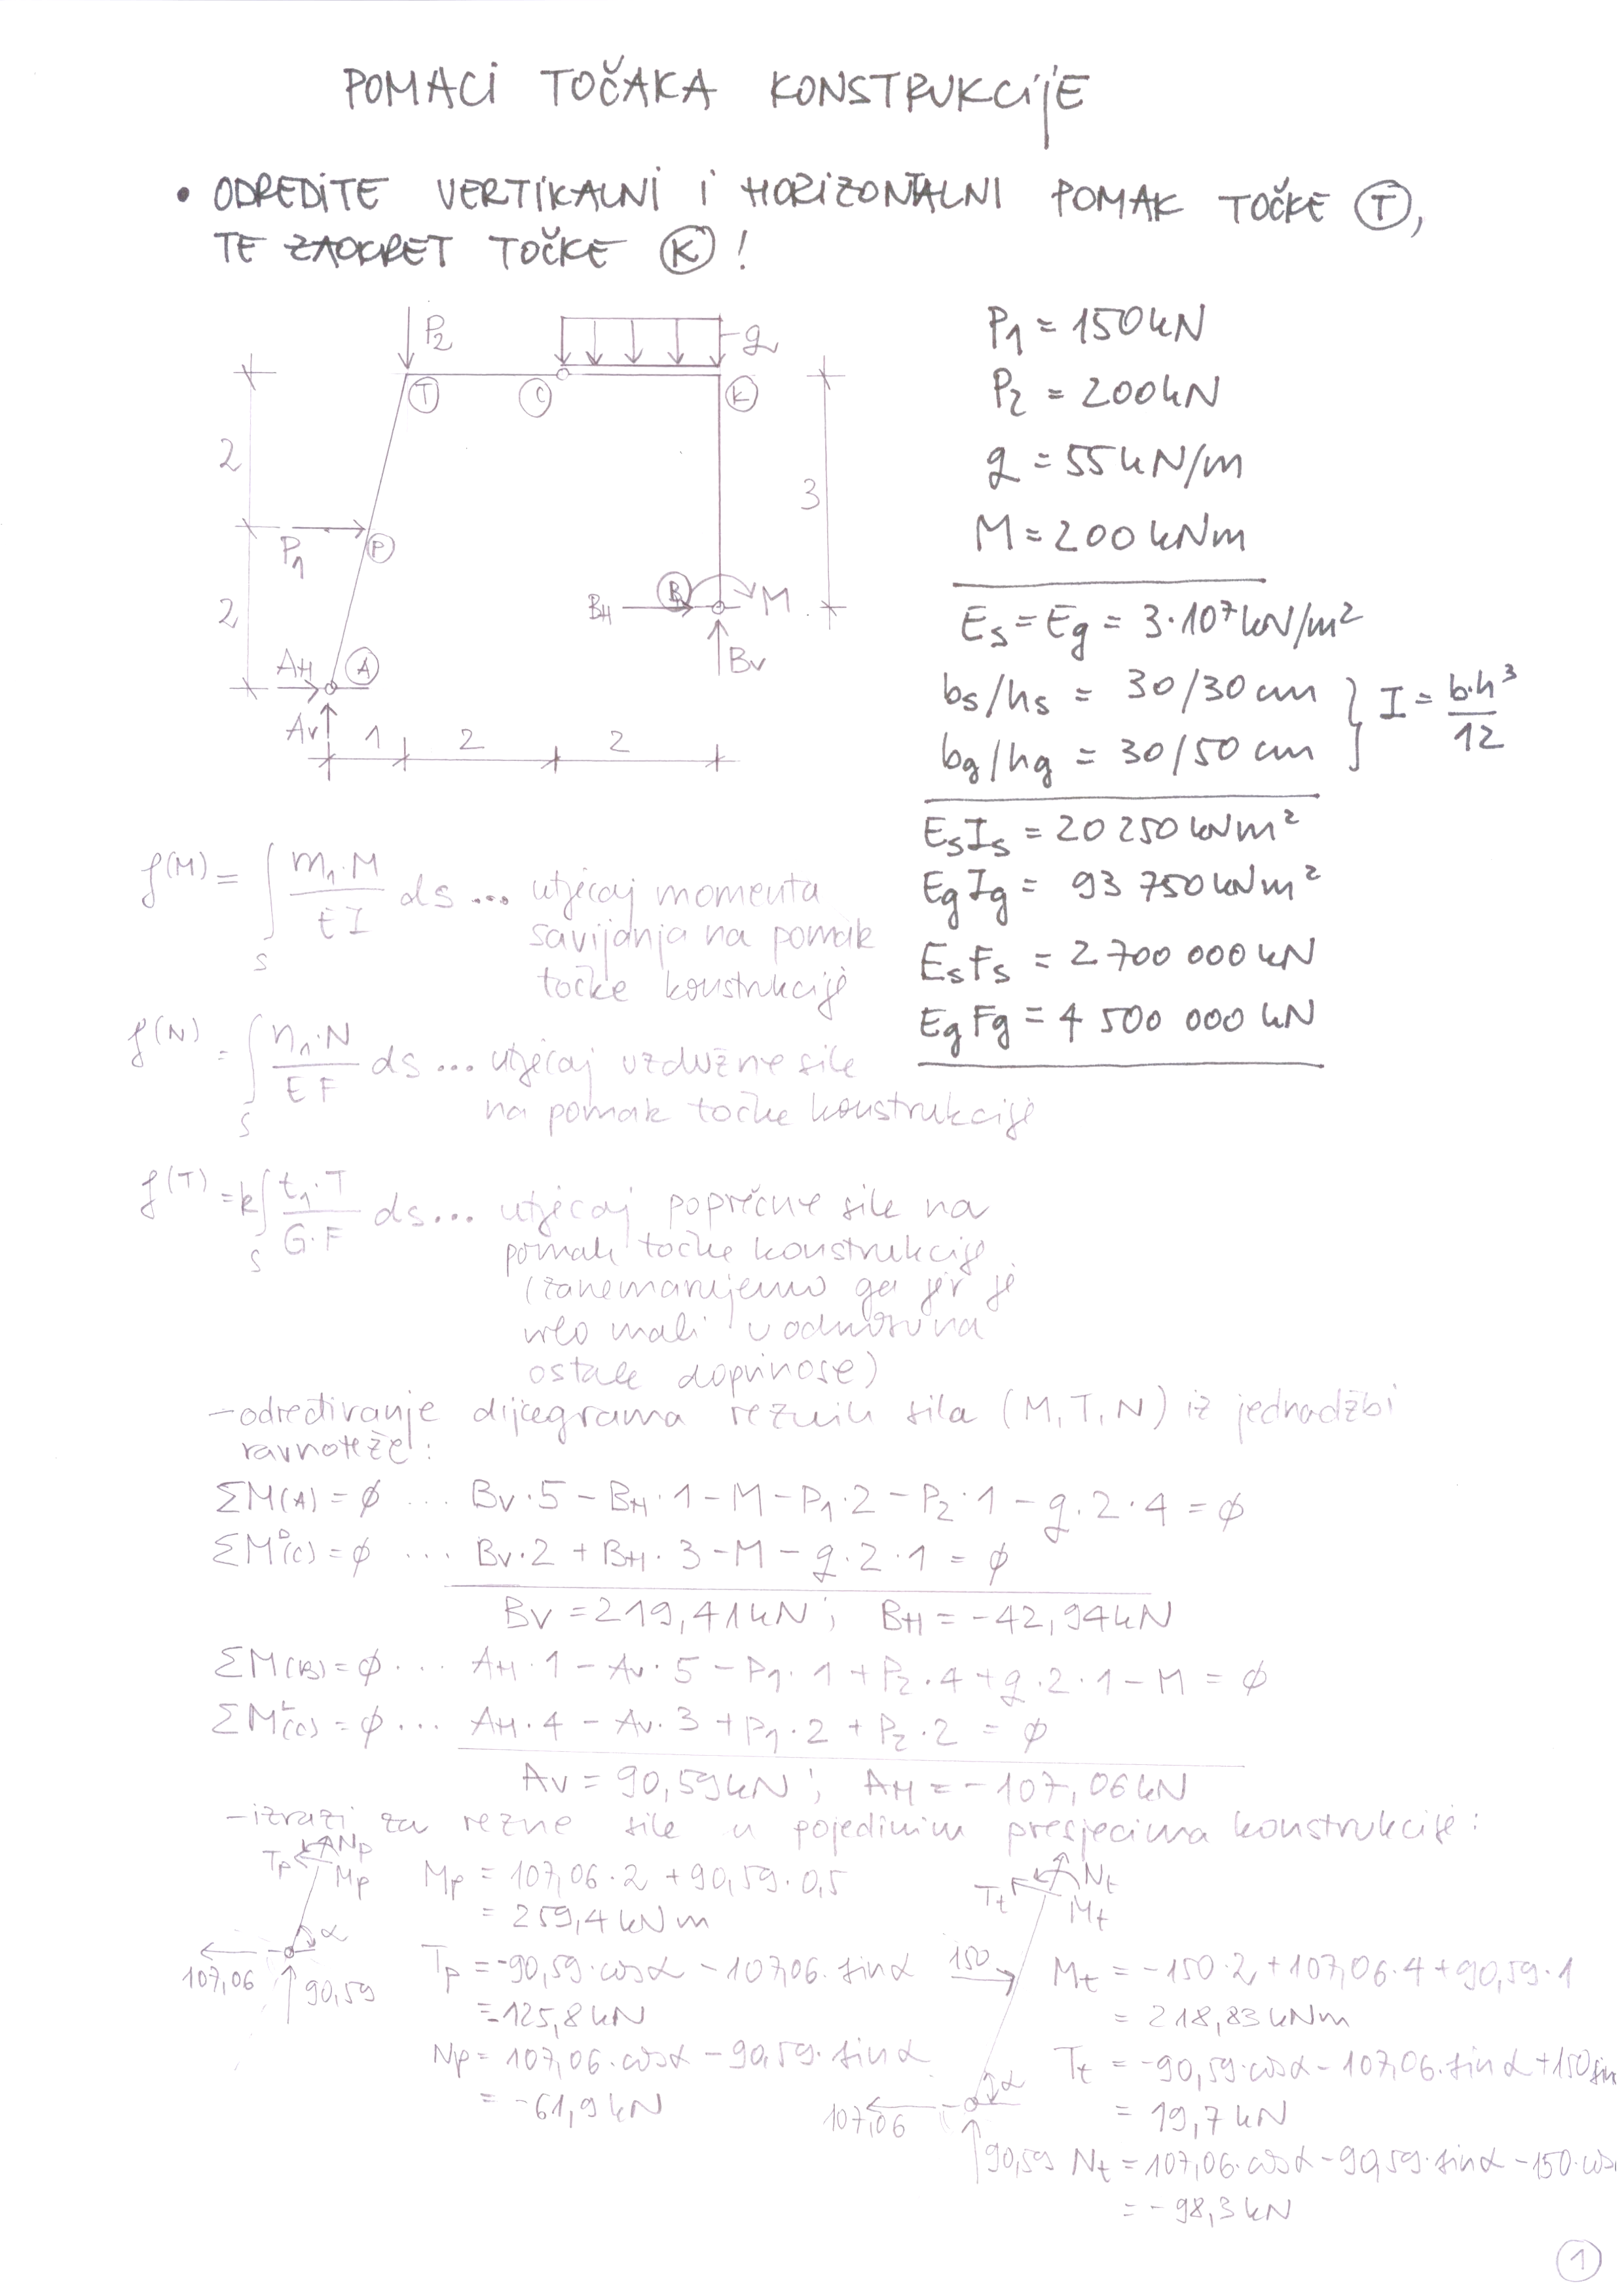 POMACI TOČAKA KONSTRUKCIJE
• ODREDITE VERTIKALNI I HORIZONTALNI POMAK TOČKE Ⓣ,
TE ZAOKRET TOČKE Ⓚ !
P2
g
T
C
K
2
3
P1
P
2
BH
B
M
BV
AH
A
AV
1
2
2
P1 = 150 kN
P2 = 200 kN
g = 55 kN/m
M = 200 kNm
Es = Eg = 3·10⁷ kN/m²
bs/hs = 30/30 cm
bg/hg = 30/50 cm
} I = b·h³/12
EsIs = 20 250 kNm²
EgIg = 93 750 kNm²
EsFs = 2 700 000 kN
EgFg = 4 500 000 kN
f(M) = ∫s m1·M/EI ds ... utjecaj momenta
savijanja na pomak
točke konstrukcije
f(N) = ∫s n1·N/EF ds ... utjecaj uzdužne sile
na pomak točke konstrukcije
f(T) = k∫s t1·T/G·F ds ... utjecaj poprečne sile na
pomak točke konstrukcije
(zanemarujemo ga jer je
vrlo mali u odnosu na
ostale doprinose)
- određivanje dijagrama reznih sila (M, T, N) iz jednadžbi
ravnoteže:
ΣM(A) = ∅ ... BV·5 - BH·1 - M - P1·2 - P2·1 - g·2·4 = ∅
ΣMᴰ(C) = ∅ ... BV·2 + BH·3 - M - g·2·1 = ∅
BV = 219,41 kN ; BH = -42,94 kN
ΣM(B) = ∅ ... AH·1 - AV·5 - P1·1 + P2·4 + g·2·1 - M = ∅
ΣMᴸ(C) = ∅ ... AH·4 - AV·3 + P1·2 + P2·2 = ∅
AV = 90,59 kN ; AH = -107,06 kN
- izrazi za rezne sile u pojedinim presjecima konstrukcije:
Tp
Np
Mp
α
107,06
90,59
Mp = 107,06·2 + 90,59·0,5
= 259,4 kNm
Tp = -90,59·cosα - 107,06·sinα
= -125,8 kN
Np = 107,06·cosα - 90,59·sinα
= -61,9 kN
Tt
Nt
Mt
150
α
107,06
90,59
Mt = -150·2 + 107,06·4 + 90,59·1
= 218,83 kNm
Tt = -90,59·cosα - 107,06·sinα + 150 sin
= 19,7 kN
Nt = 107,06·cosα - 90,59·sinα - 150·cos
= -98,3 kN
1